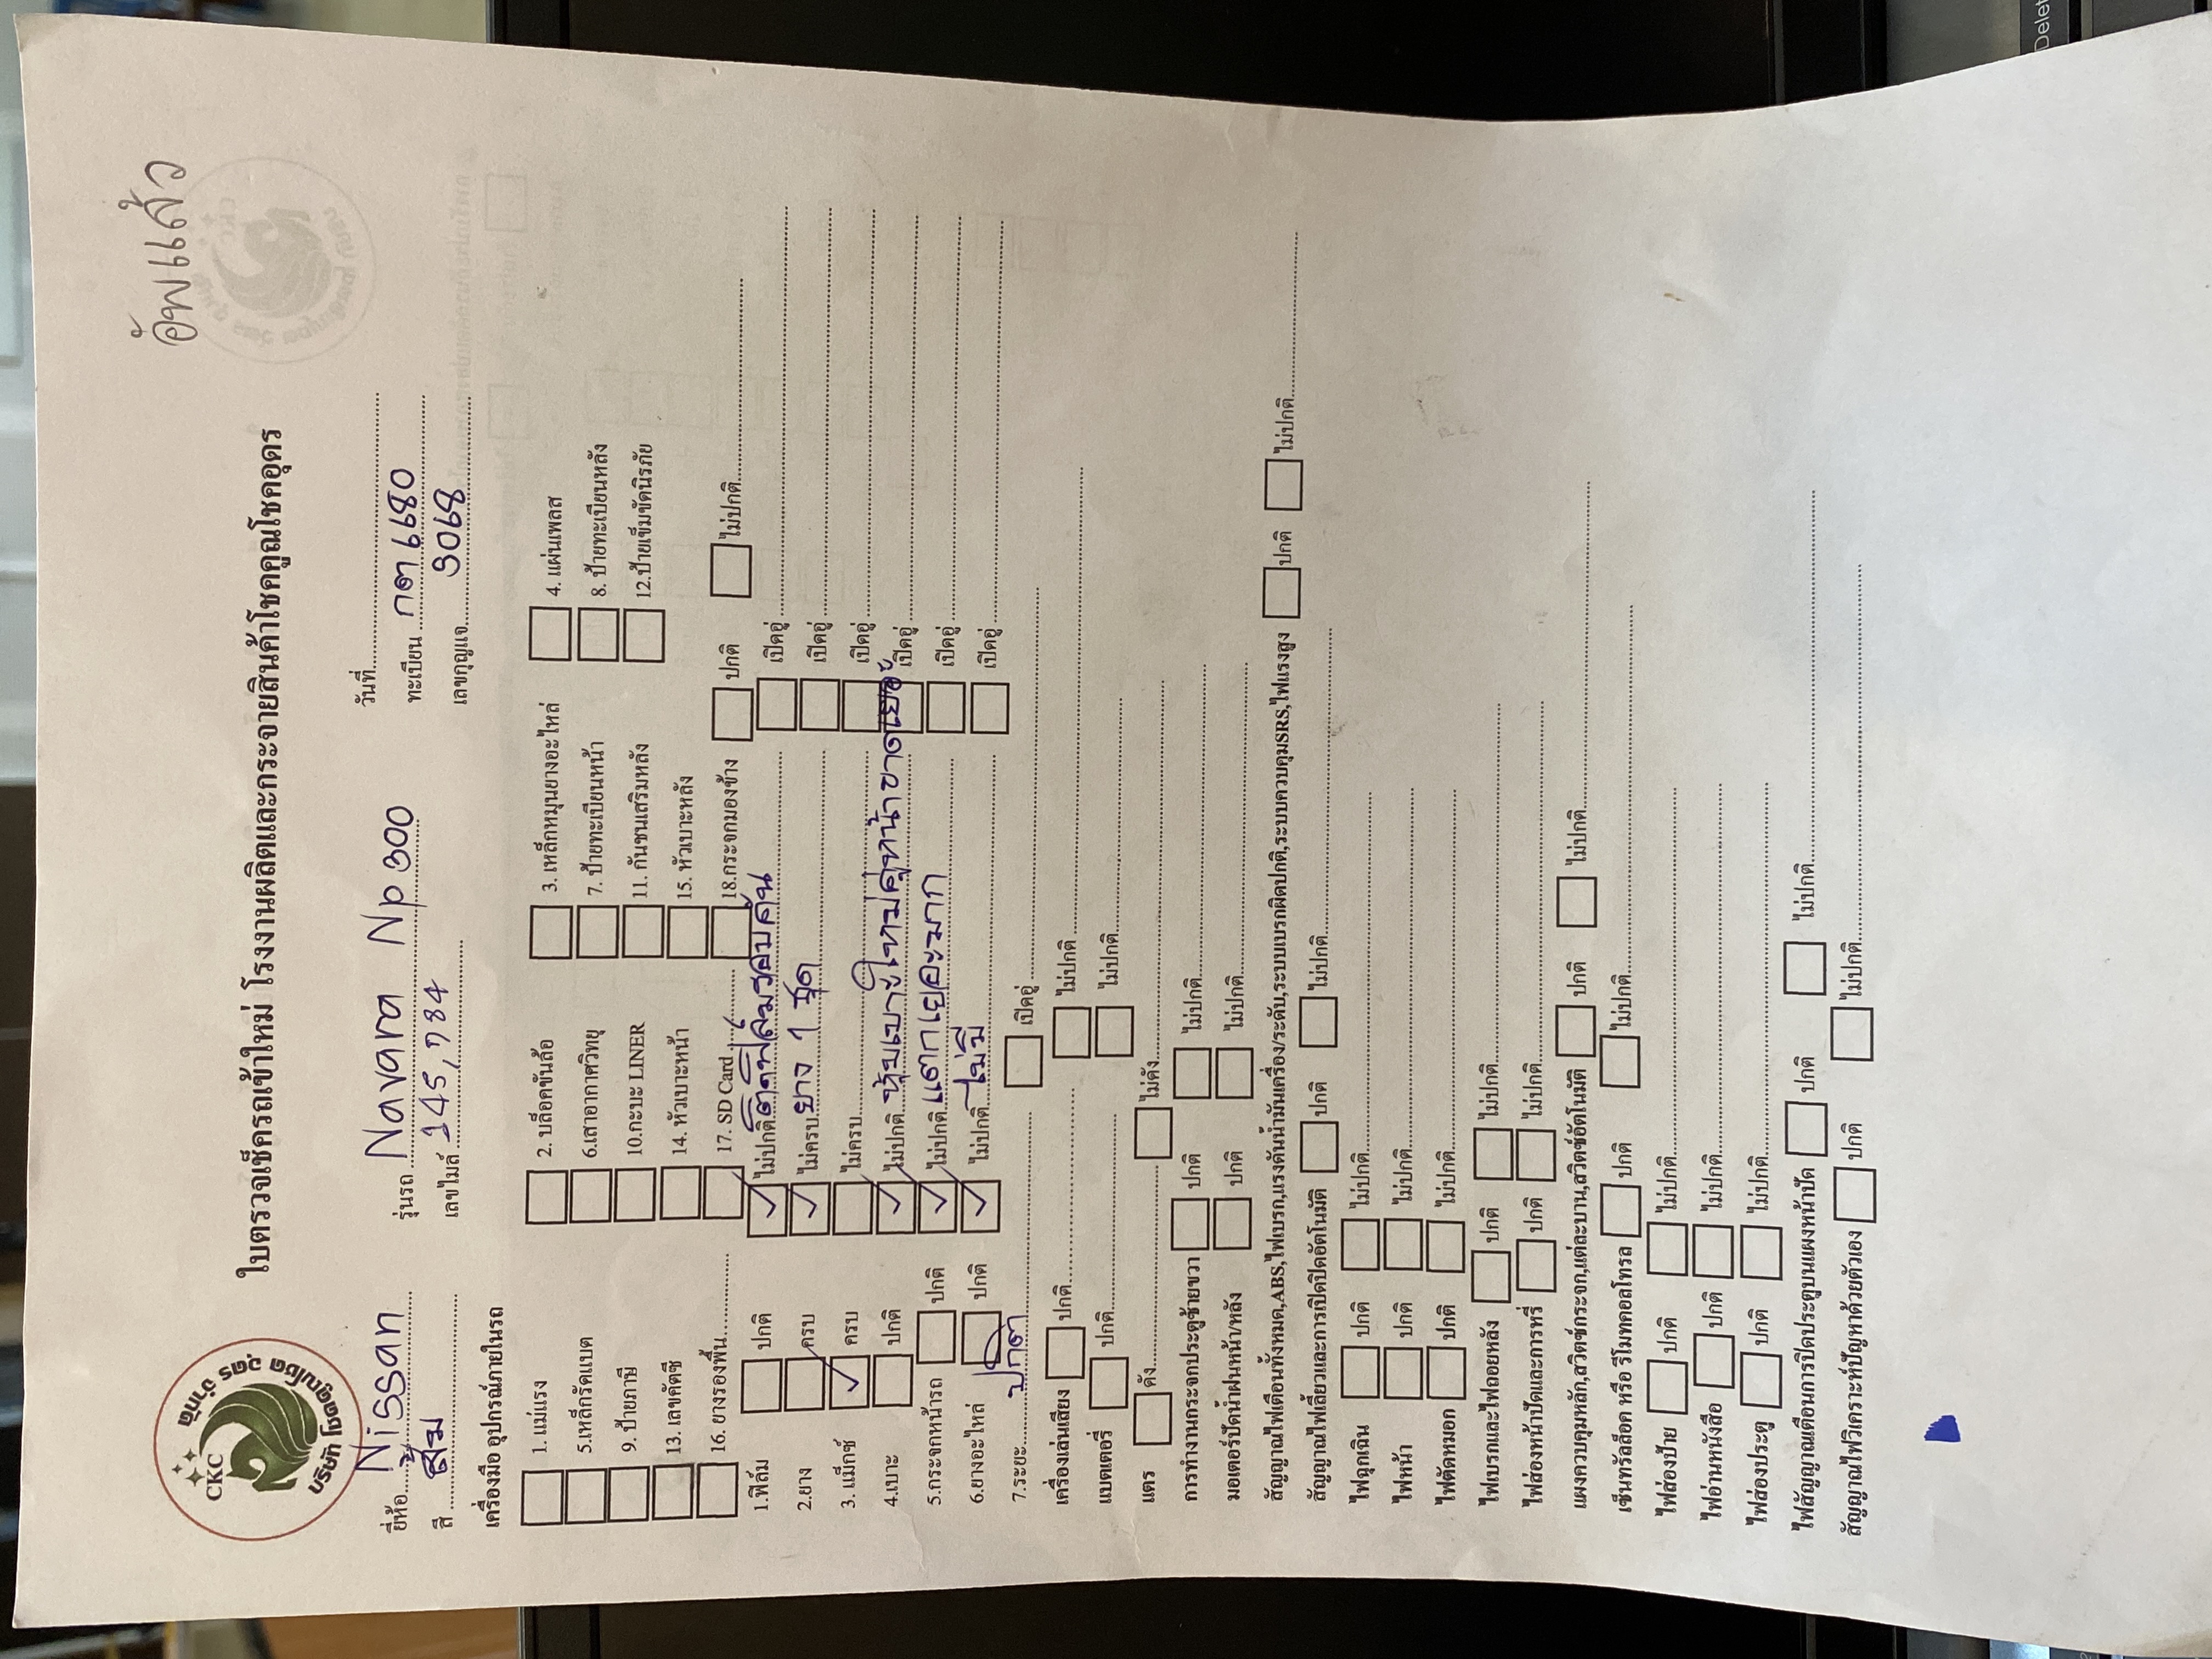 อัพแล้ว
CKC
บริษัท โชคคูณโชค อุดร จำกัด
ใบตรวจเช็ครถเข้าใหม่ โรงงานผลิตและกระจายสินค้าโชคคูณโชคอุดร
วันที่
ยี่ห้อ Nissan รุ่นรถ Navara Np 300 ทะเบียน กต 6680
สี ส้ม เลขไมล์ 245,784 เลขกุญแจ 3068
เครื่องมือ อุปกรณ์ภายในรถ
1. แม่แรง 2. บล็อคขันล้อ 3. เหล็กหมุนยางอะไหล่ 4. แผ่นเพลส
5.เหล็กรัดแบต 6.เสาอากาศวิทยุ 7. ป้ายทะเบียนหน้า 8. ป้ายทะเบียนหลัง
9. ป้ายภาษี 10.กะบะ LINER 11. กันชนเสริมหลัง 12.ป้ายเข็มขัดนิรภัย
13. เลขคัตซี 14. หัวเบาะหน้า 15. หัวเบาะหลัง
16. ยางรองพื้น 17. SD Card 18.กระจกมองข้าง ปกติ ไม่ปกติ
1.ฟิล์ม ปกติ ✓ ไม่ปกติ ติดฟิล์มรอบคัน เปิดอู่
2.ยาง ครบ ✓ ไม่ครบ ยาง 1 ชุด เปิดอู่
3. แม็กซ์ ✓ ครบ ไม่ครบ เปิดอู่
4.เบาะ ปกติ ✓ ไม่ปกติ หุ้มเบาะใหม่คู่หน้าขาดเยอะ เปิดอู่
5.กระจกหน้ารถ ปกติ ✓ ไม่ปกติ แตกเยอะมาก เปิดอู่
6.ยางอะไหล่ ปกติ ✓ ไม่ปกติ ไม่มี เปิดอู่
7.ระยะ ปกติ เปิดอู่
เครื่องเล่นเสียง ปกติ ไม่ปกติ
แบตเตอรี่ ปกติ ไม่ปกติ
แตร ดัง ไม่ดัง
การทำงานกระจกประตูซ้ายขวา ปกติ ไม่ปกติ
มอเตอร์ปัดน้ำฝนหน้า/หลัง ปกติ ไม่ปกติ
สัญญาณไฟเตือนทั้งหมด,ABS,ไฟเบรก,แรงดันน้ำมันเครื่อง/ระดับ,ระบบเบรกผิดปกติ,ระบบควบคุมSRS,ไฟแรงสูง ปกติ ไม่ปกติ
สัญญาณไฟเลี้ยวและการเปิดปิดอัตโนมัติ ปกติ ไม่ปกติ
ไฟฉุกเฉิน ปกติ ไม่ปกติ
ไฟหน้า ปกติ ไม่ปกติ
ไฟตัดหมอก ปกติ ไม่ปกติ
ไฟเบรกและไฟถอยหลัง ปกติ ไม่ปกติ
ไฟส่องหน้าปัดและการหรี่ ปกติ ไม่ปกติ
แผงควบคุมหลัก,สวิตซ์กระจก,แต่ละบาน,สวิตซ์อัตโนมัติ ปกติ ไม่ปกติ
เซ็นทรัลล็อค หรือ รีโมทคอลโทรล ปกติ ไม่ปกติ
ไฟส่องป้าย ปกติ ไม่ปกติ
ไฟอ่านหนังสือ ปกติ ไม่ปกติ
ไฟส่องประตู ปกติ ไม่ปกติ
ไฟสัญญาณเตือนการปิดประตูบนแผงหน้าปัด ปกติ ไม่ปกติ
สัญญาณไฟวิเคราะห์ปัญหาด้วยตัวเอง ปกติ ไม่ปกติ
Delete